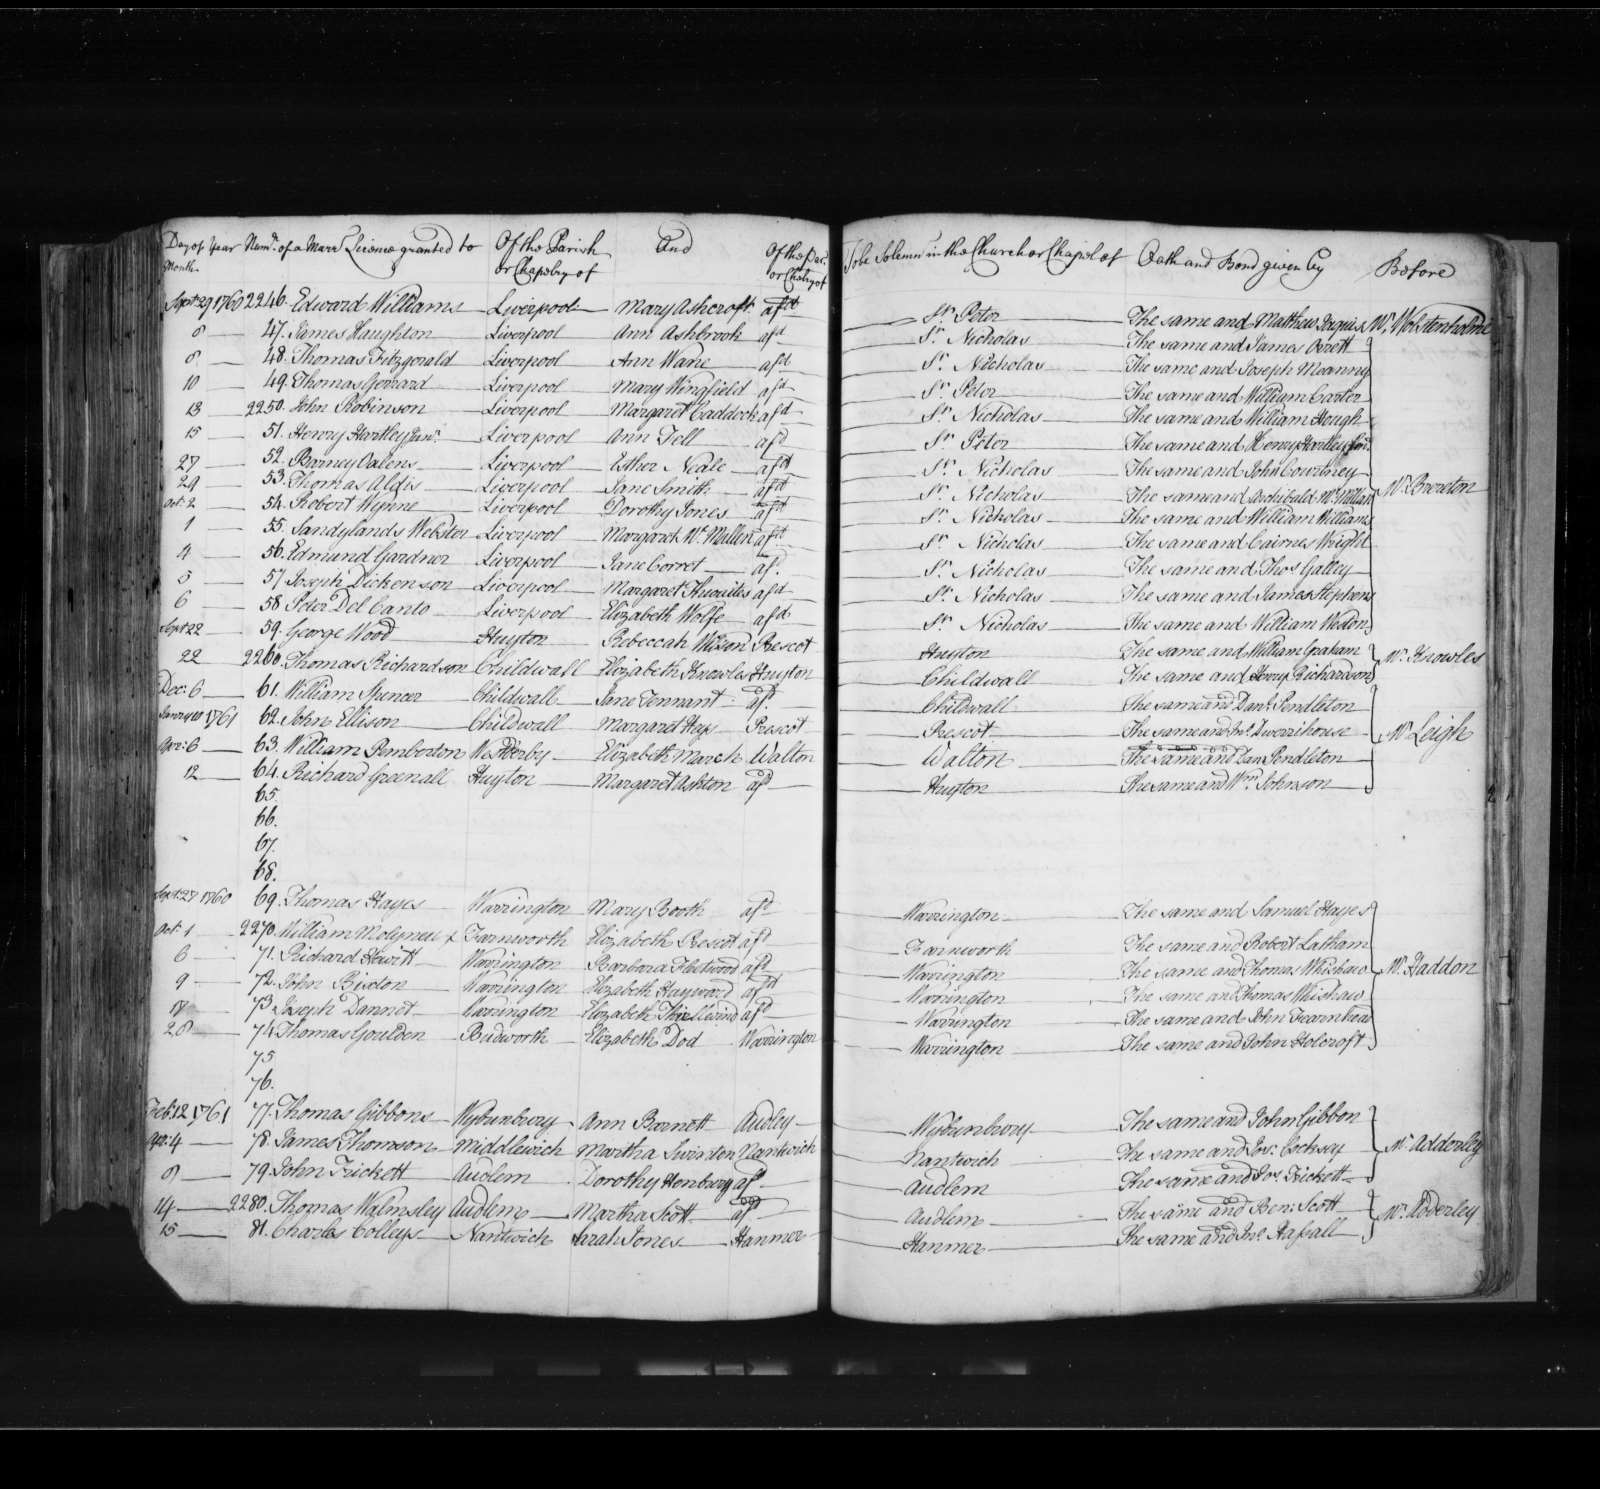 Day of Month Year Numr. of a Marr. License granted to Of the Parish or Chapelry of And Of the Par. or Chalry of To be Solemn. in the Church or Chapel of Oath and Bond given by Before
Sept. 29 1760 2246. Edward Williams Liverpool Mary Ashcroft afd St. Peter The same and Matthew Mr. Wolstenholme
8 47. James Haughton Liverpool Ann Ashbrook afd St. Nicholas The same and James Orrett
8 48. Thomas Fitzgerald Liverpool Ann Wane afd St. Nicholas The same and Joseph Meanny
10 49. Thomas Gerrard Liverpool Mary Wingfield afd St. Peter The same and William Carter
13 2250. John Robinson Liverpool Margaret Caddock afd St. Nicholas The same and William Hough
15 51. Henry Hartley Junr. Liverpool Ann Fell afd St. Peter The same and Henry Hartley
27 52. Barney Oalens Liverpool Esther Neale afd St. Nicholas The same and John Courtney
29 53. Thomas Aldis Liverpool Jane Smith afd St. Nicholas The same and Archibald Mc. Millan Mr. Brereton
Oct: 2 54. Robert Wynne Liverpool Dorothy Jones afd St. Nicholas The same and William Williams
1 55. Sandylands Webster Liverpool Margaret Mc. Mullen afd St. Nicholas The same and Cairnes Wright
4 56. Edmund Gardner Liverpool Jane Corret afd St. Nicholas The same and Thos Galley
5 57. Joseph Dickenson Liverpool Margaret Thwaites afd St. Nicholas The same and James Stephens
6 58. Peter Del Canto Liverpool Elizabeth Wolfe afd St. Nicholas The same and William
Sept 22 59. George Wood Huyton Rebeccah Wilson Prescot Huyton The same and William Graham
22 2260. Thomas Richardson Childwall Elizabeth Knowles Huyton Childwall The same and Henry Richardson Mr. Knowles
Dec: 6 61. William Spencer Childwall Jane Tennant afd Childwall The same and Danl. Pendleton
January 10 1761 62. John Ellison Childwall Margaret Heys Prescot Prescot The same and Jno. Swerihouse Mr. Leigh
Apr: 6 63. William Pemberton Wt. Derby Elizabeth March Walton Walton The same and Dan Pendleton
12 64. Richard Greenall Huyton Margaret Ashton afd Huyton The same and Wm. Johnson
65.
66.
67.
68.
Sept: 27 1760 69. Thomas Hayes Warrington Mary Booth afd Warrington The same and Samuel Hayes
Oct. 1 2270. William Molyneux Farnworth Elizabeth Prescot afd Farnworth The same and Robert Latham
6 71. Richard Hewitt Warrington Barbara Fleetwood afd Warrington The same and Thomas Whishaw Mr. Haddon
9 72. John Bixton Warrington Elizabeth Hayward afd Warrington The same and Thomas Wishaw
73. Joseph Dannet Warrington Elizabeth afd Warrington The same and John Fearnhead
28 74. Thomas Goulden Budworth Elizabeth Dod Warrington Warrington The same and John Holcroft
75
76.
Feb: 12 1761 77. Thomas Gibbons Wybunbury Ann Barnett Audley Wybunbury The same and John Gibbon
Apr: 4 78. James Thomson Middlewich Martha Swinton Nantwich Nantwich The same and Jos. Cocksey Mr. Adderley
8 79. John Trickett Audlem Dorothy Henbury afd Audlem The same and Jos. Trickett
14 2280. Thomas Walmsley Audlem Martha Scott afd Audlem The same and Ben: Scott Mr. Adderley
15 81. Charles Colleys Nantwich Sarah Jones Hanmer Hanmer The same and Jno. Hassall